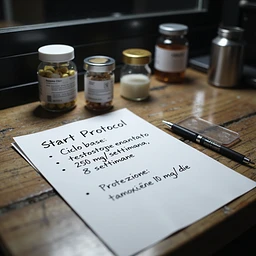 Start Protocol
• Ciclo base:
• testostoje enantato
• 250 mg/settimana,
8 settimane
• Protezione:
tamoxiene 10 mg/die